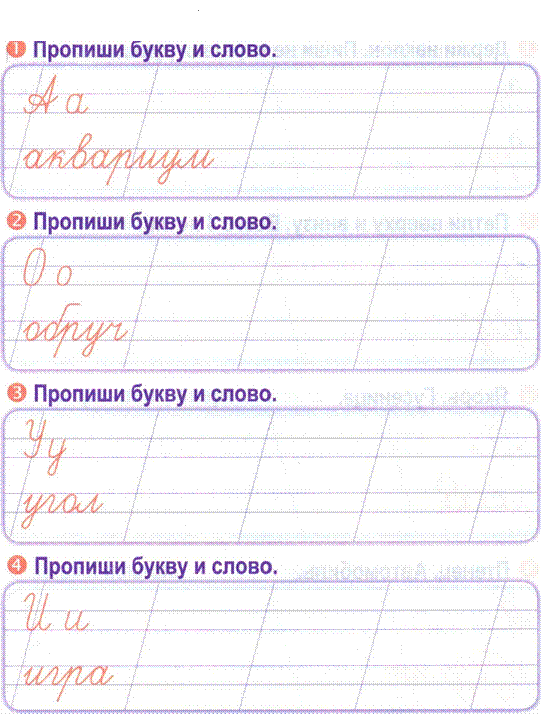 1 Пропиши букву и слово.
А а
аквариум
2 Пропиши букву и слово.
О о
обруч
3 Пропиши букву и слово.
У у
угол
4 Пропиши букву и слово.
И и
игра